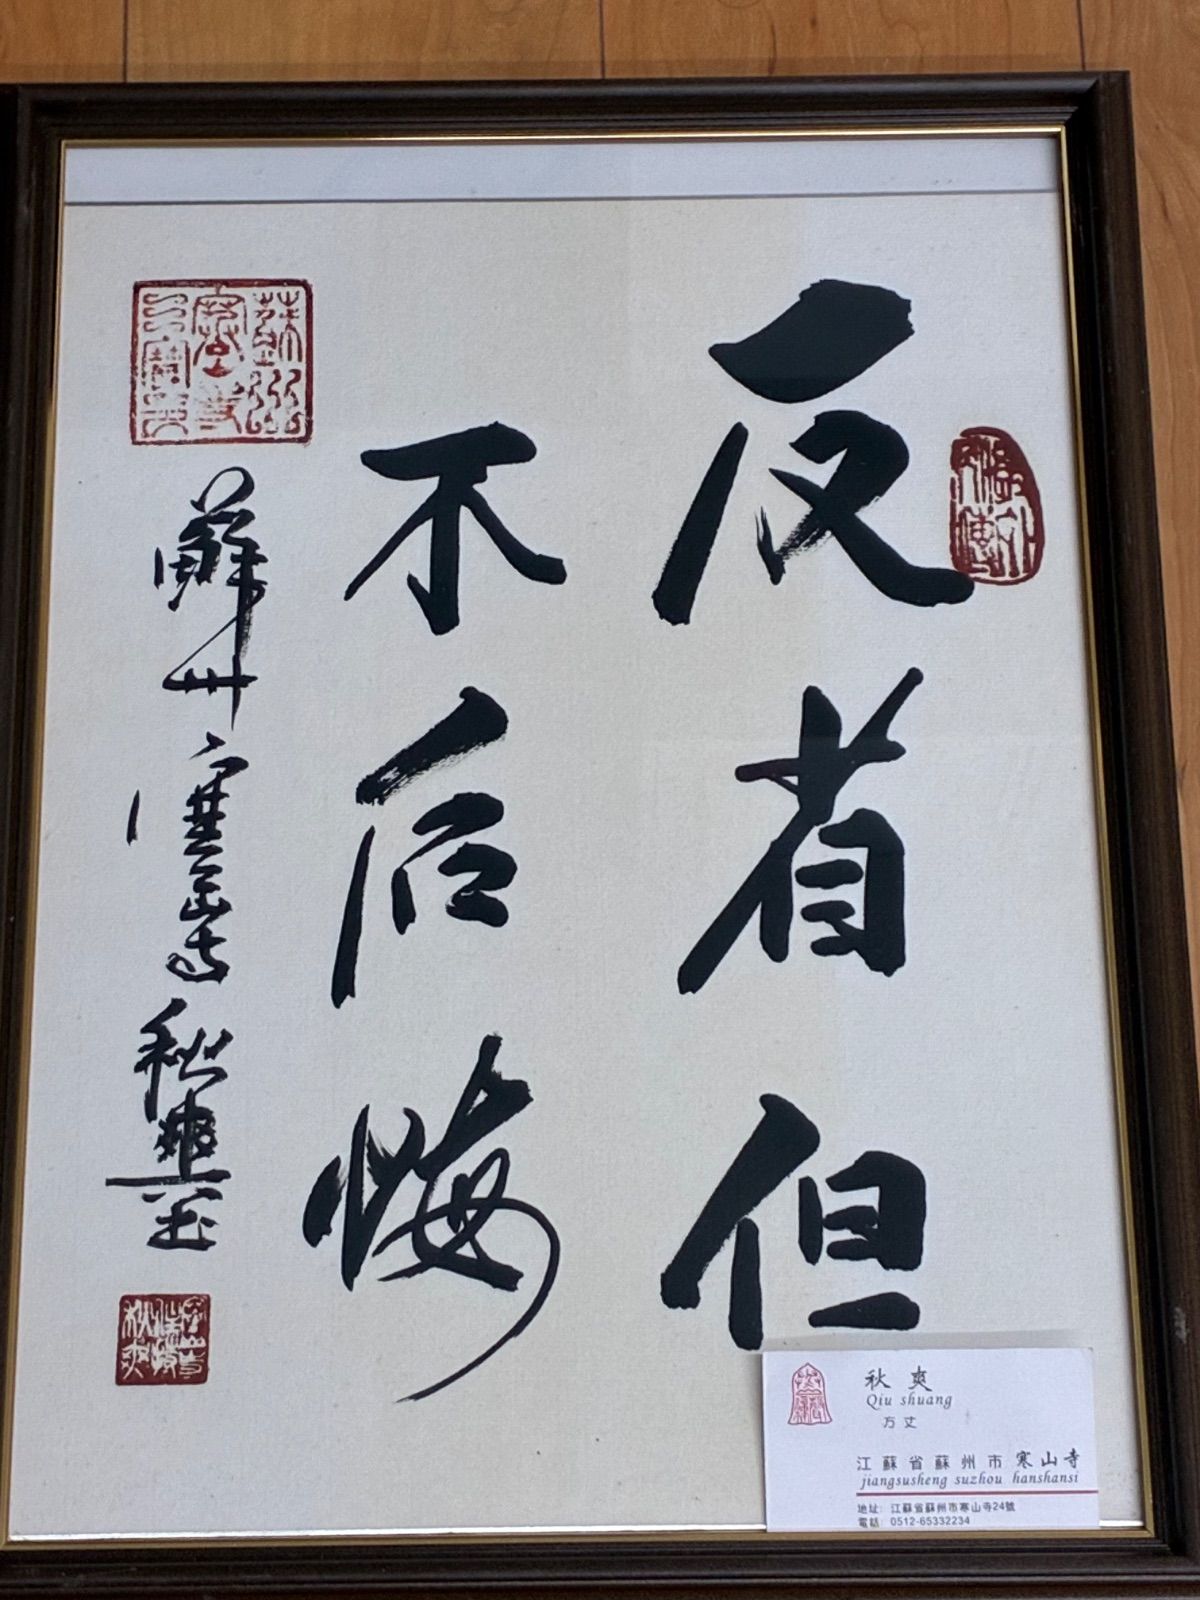 反省但
不后悔
蘇州寒山寺秋爽
秋爽
Qiu shuang
方丈
江蘇省蘇州市寒山寺
jiangsusheng suzhou hanshansi
地址: 江蘇省蘇州市寒山寺24號
電話: 0512-65332234